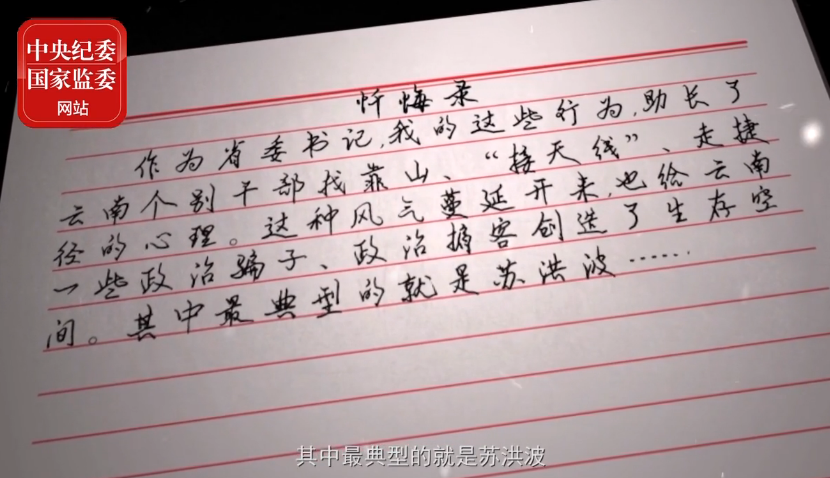 中央纪委
国家监委
网站
忏悔录
作为省委书记,我的这些行为,助长了
云南个别干部找靠山、“接天线”、走捷
径的心理。这种风气蔓延开来,也给云南
一些政治骗子、政治掮客创造了生存空
间。其中最典型的就是苏洪波……
其中最典型的就是苏洪波